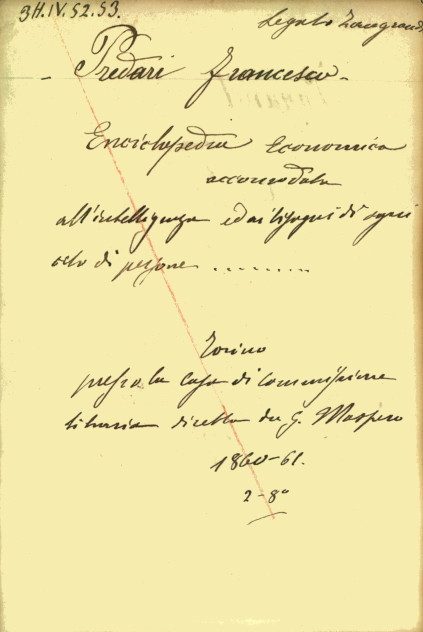 3H.IV.52.53.
Legato Zonograndi
- Predari Francesco -
Enciclopedia Economica
accomodata
all'intelligenza ed ai bisogni di ogni
ceto di persone ..........
Torino
presso la Casa di Commissione
libraria diretta da G. Maspero
1860-61.
2-8°